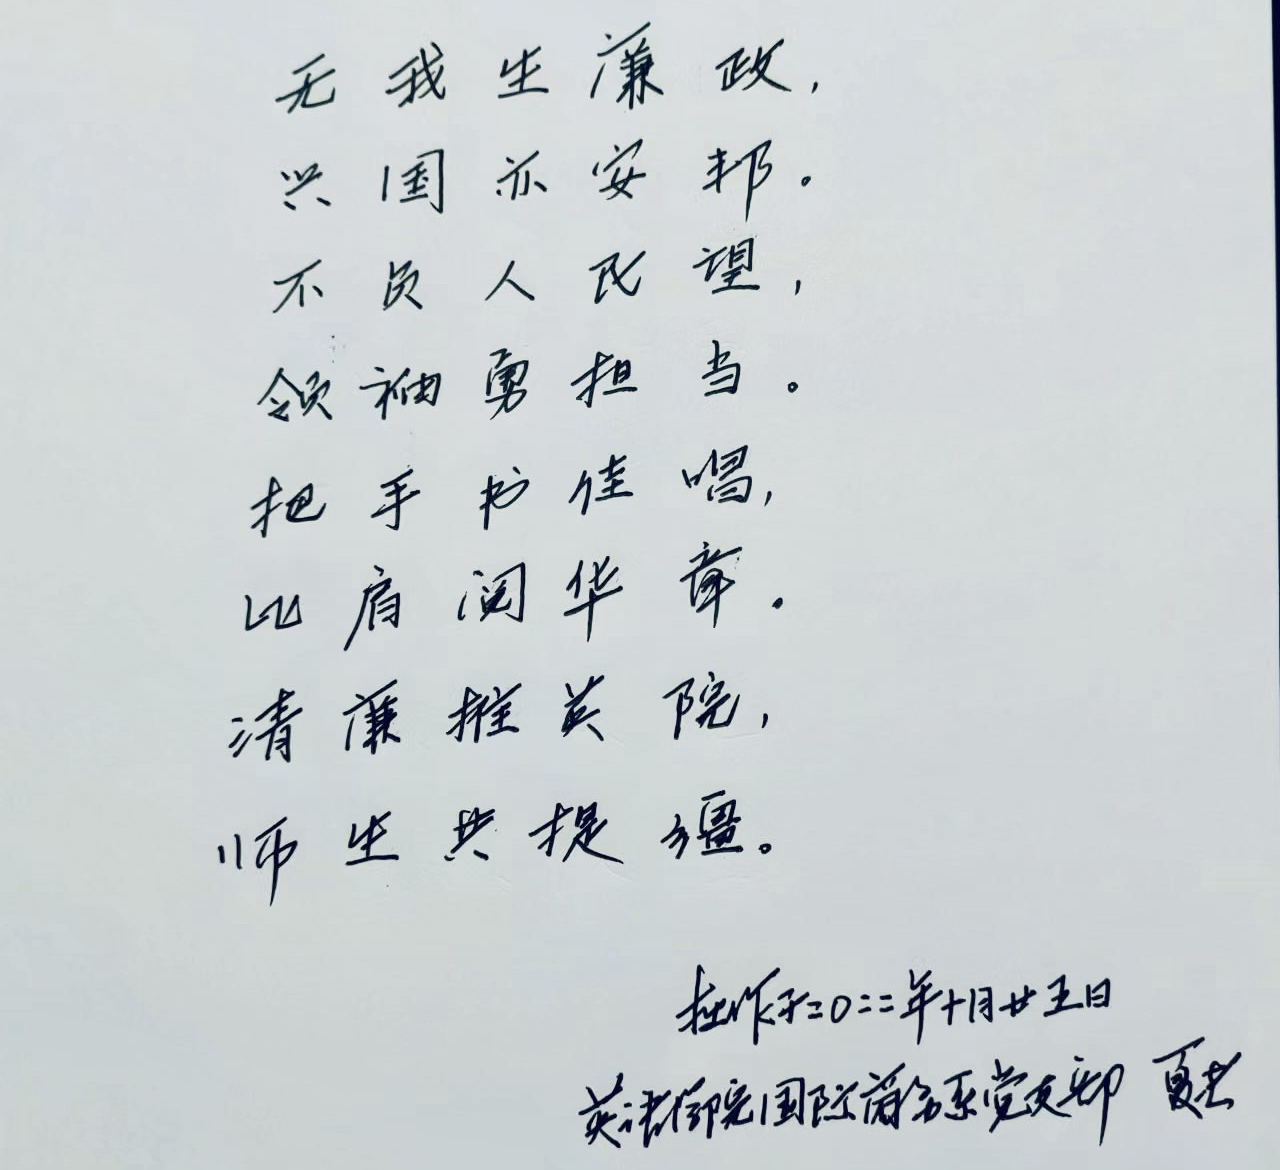 无我生廉政，
兴国亦安邦。
不负人民望，
领袖勇担当。
把手书佳唱，
比肩阅华章。
清廉推英院，
师生共提疆。
拙作于二〇二二年十月廿五日
英语学院国际商务系党支部 夏